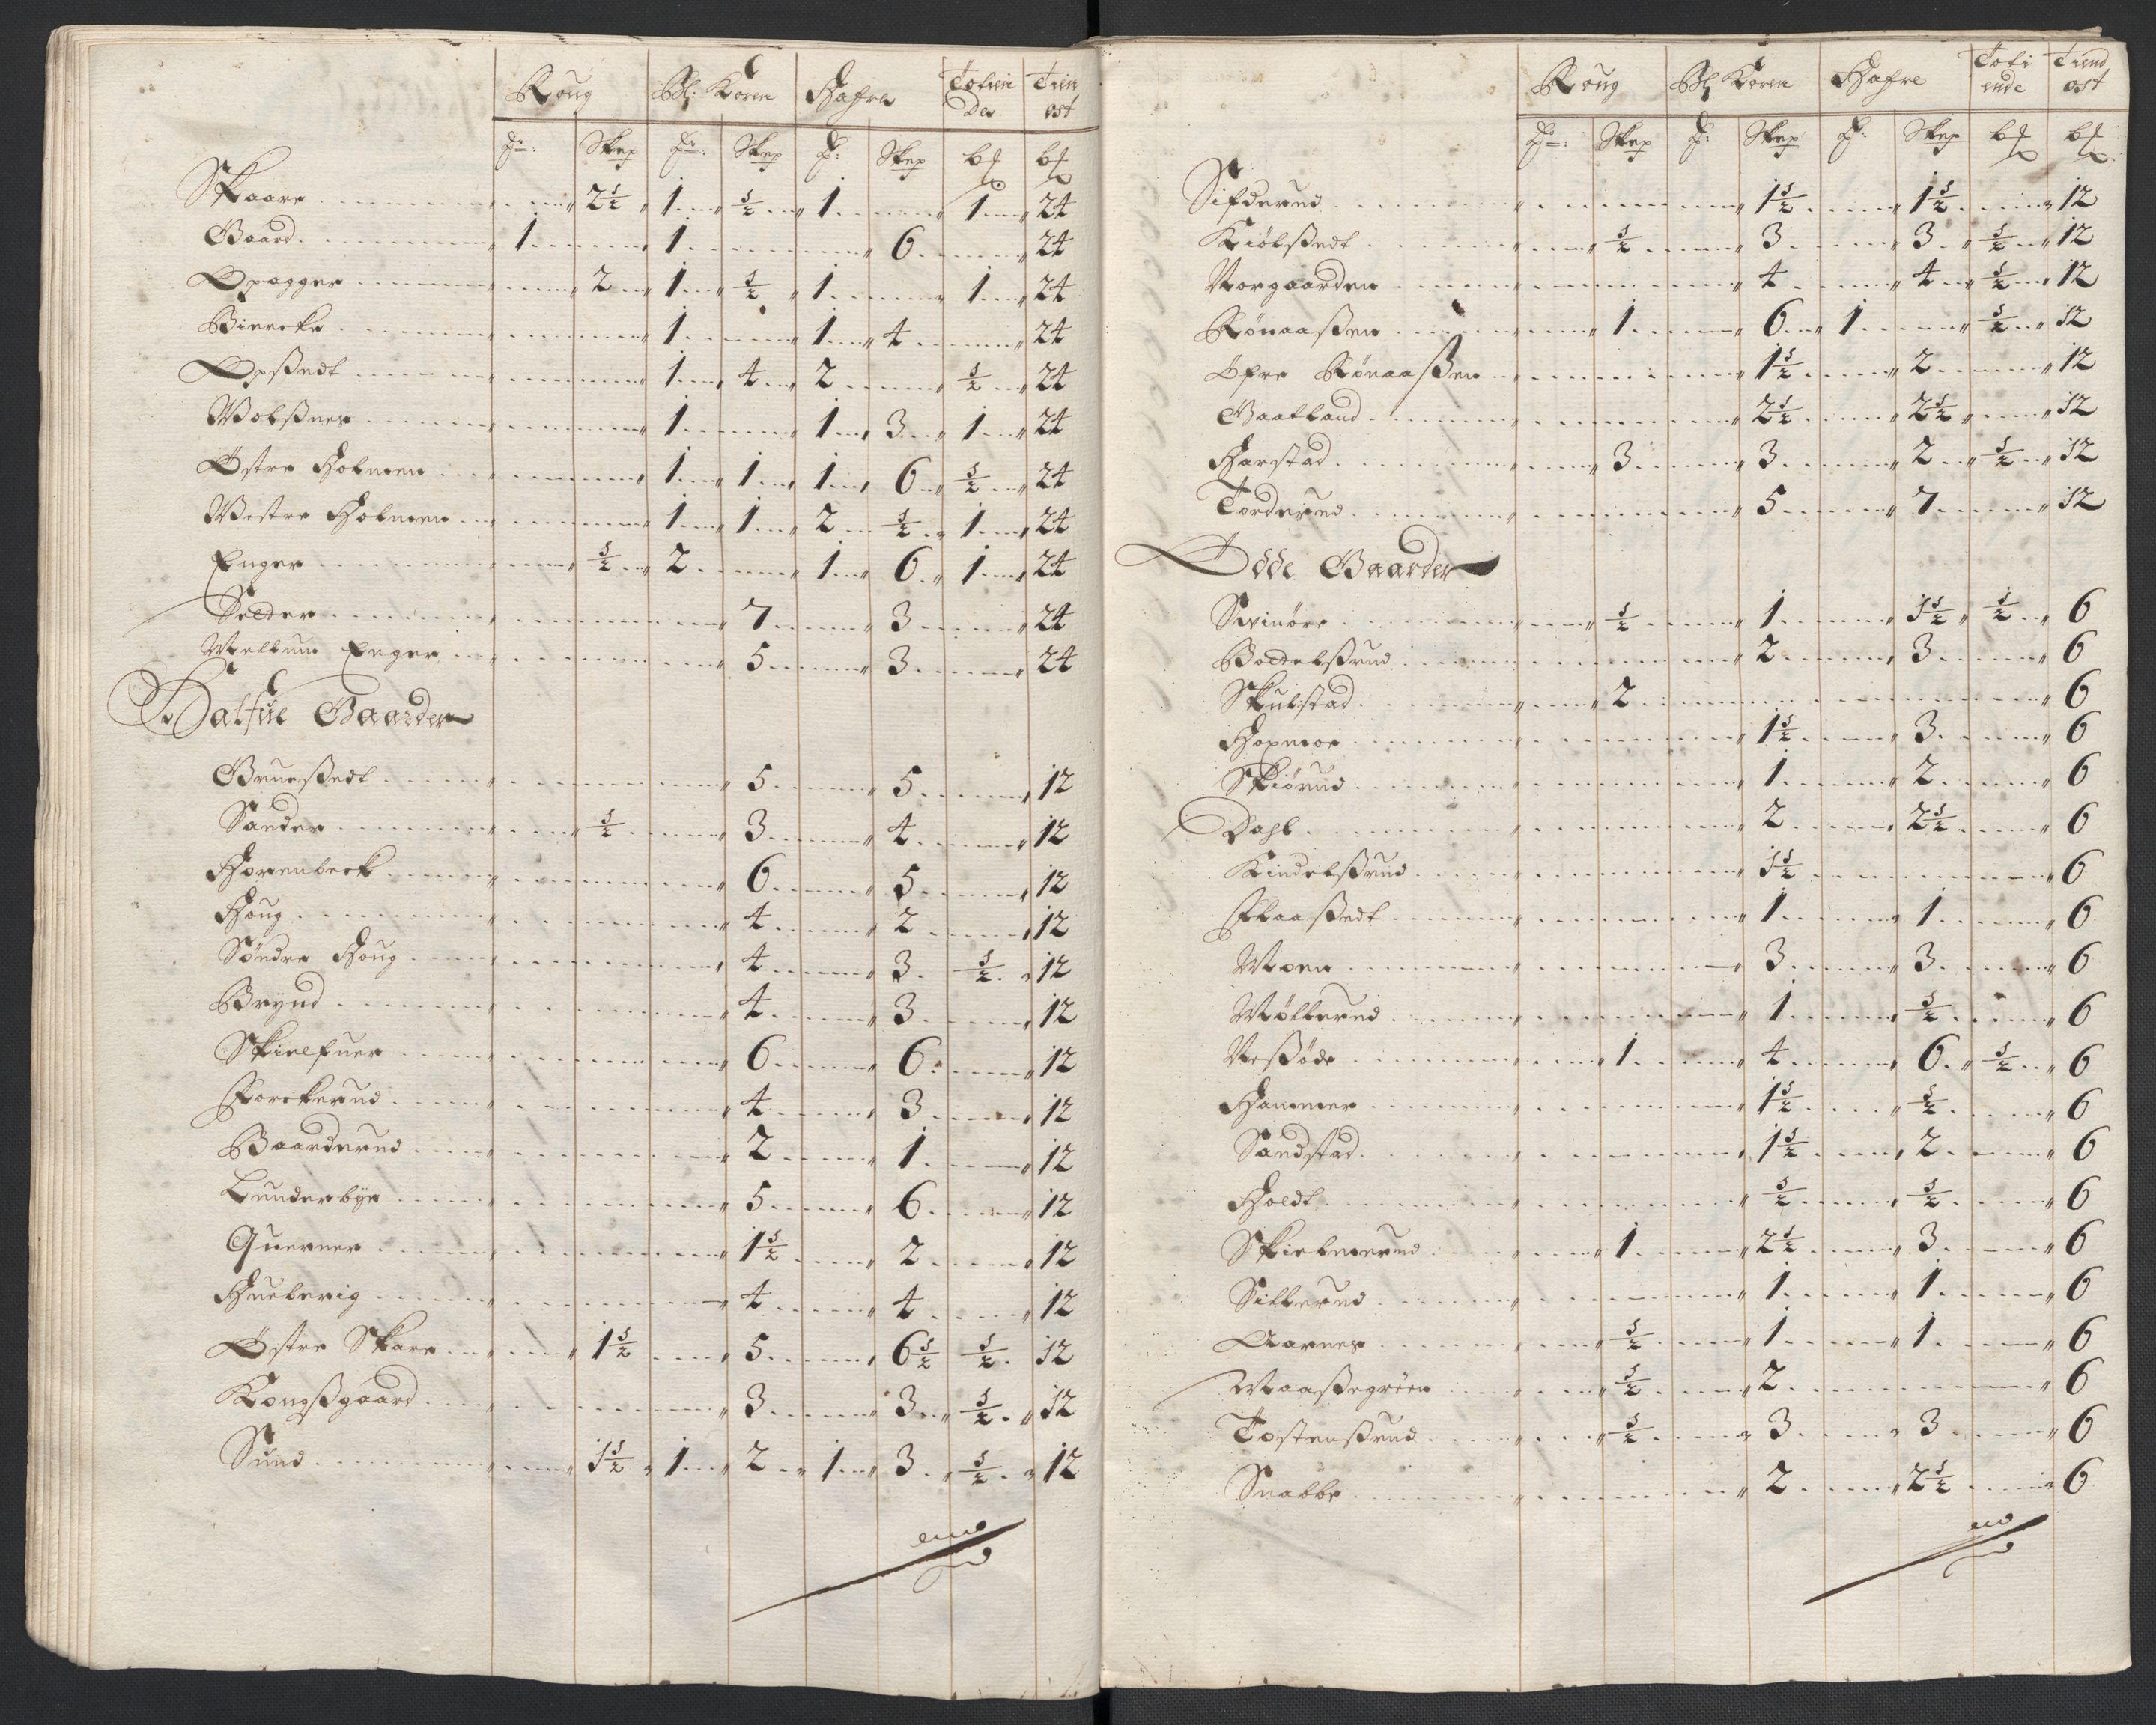 Roug Bl: Koren Hafre Totien Tien
der ost
Fr: Skep Fr: Skep F: Skep b℔ b℔
Skaare 2½ 1 ½ 1 1 24
Gaard 1 1 6 24
Opagger 2 1 ½ 1 1 24
Biercke 1 1 4 24
Opßedt 1 4 2 ½ 24
Wolßnes 1 1 3 1 24
Østre Holmen 1 1 1 6 ½ 24
Westre Holmen 1 1 2 ½ 1 24
Enger ½ 2 1 6 1 24
Setter 7 3 24
Mellum Enger 5 3 24
Halfue Gaarder
Grueßedt 5 5 12
Sander ½ 3 4 12
Horenbeck 6 5 12
Houg 4 2 12
Søndre Houg 4 3 ½ 12
Brÿnd 4 3 12
Skielfuer 6 6 12
Forckerud 4 3 12
Baarderud 2 1 12
Lunderbÿe 5 6 12
Querner 1½ 2 12
Hueberig 4 4 12
Østre Skare 1½ 5 6½ ½ 12
Kongßgaard 3 3 ½ 12
Sund 1½ 1 2 1 3 ½ 12
Roug Bl Koren Hafre Toti Tiend
ende ost
Fr: Skep F: Skep F: Skep b℔ b℔
Sifderud 1½ 1½ 12
Kiølßedt ½ 3 3 ½ 12
Norgaarden 4 4 ½ 12
Rønaaßen 1 6 1 ½ 12
Øfre Rønaaßen 1½ 2 12
Gaatland 2½ 2½ 12
Harstad 3 3 2 ½ 12
Torderud 5 7 12
Øde Gaarder
Svinøre ½ 1 1½ ½ 6
Bottelßrud 2 3 6
Skulstad 2 6
Hopmoe 1½ 3 6
Skiørud 1 2 6
Dahl 2 2½ 6
Kindelßrud 1½ 6
Flaaßedt 1 1 6
Moen 3 3 6
Møllerud 1 ½ 6
Neßøde 1 4 6 ½ 6
Hammer 1½ ½ 6
Sandstad 1½ 2 6
Holdt ½ ½ 6
Skielmerud 1 2½ 3 6
Sillerud 1 1 6
Aarnes ½ 1 1 6
Maaßegrøen ½ 2 6
Tostenßrud ½ 3 3 6
Snabbe 2 2½ 6